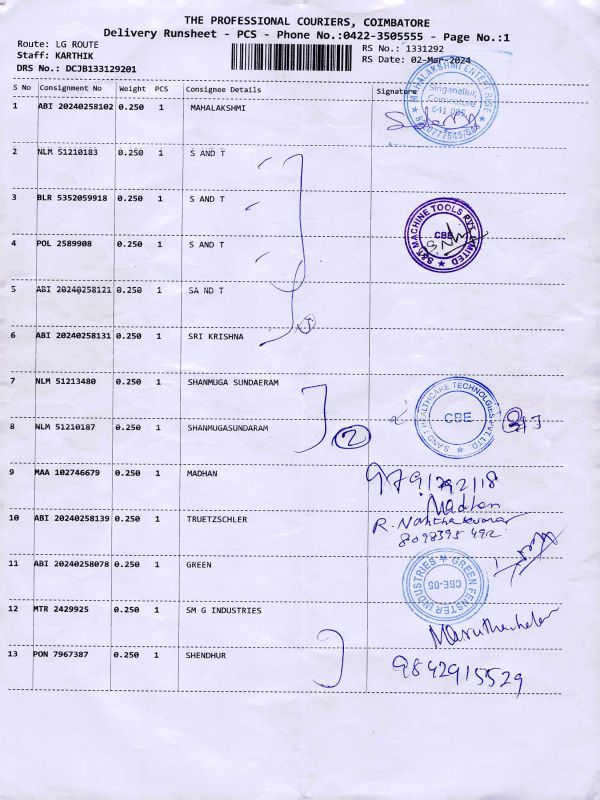 THE PROFESSIONAL COURIERS, COIMBATORE
Delivery Runsheet - PCS - Phone No.:0422-3505555 - Page No.:1
Route: LG ROUTE
Staff: KARTHIK
DRS No.: DCJB133129201
RS No.: 1331292
RS Date: 02-Mar-2024
S No Consignment No Weight PCS Consignee Details Signature
1 ABI 20240258102 0.250 1 MAHALAKSHMI
MAHALAKSHMI ENTERPRISE
Singanallur,
Coimbatore
641 005.
2 NLM 51210183 0.250 1 S AND T
3 BLR 5352059918 0.250 1 S AND T
S&T MACHINE TOOLS PVT LIMITED
CBE
4 POL 2589908 0.250 1 S AND T
5 ABI 20240258121 0.250 1 SA ND T
6 ABI 20240258131 0.250 1 SRI KRISHNA
7 NLM 51213480 0.250 1 SHANMUGA SUNDAERAM
HEALTHCARE TECHNOLOGIES PVT LTD
CBE
8 NLM 51210187 0.250 1 SHANMUGASUNDARAM
2
9 MAA 102746679 0.250 1 MADHAN
Madhan
10 ABI 20240258139 0.250 1 TRUETZSCHLER
8098395 492
11 ABI 20240258078 0.250 1 GREEN
GREEN FENSTER INDUSTRIES
CBE-05
12 MTR 2429925 0.250 1 SM G INDUSTRIES
13 PON 7967387 0.250 1 SHENDHUR
9842915529